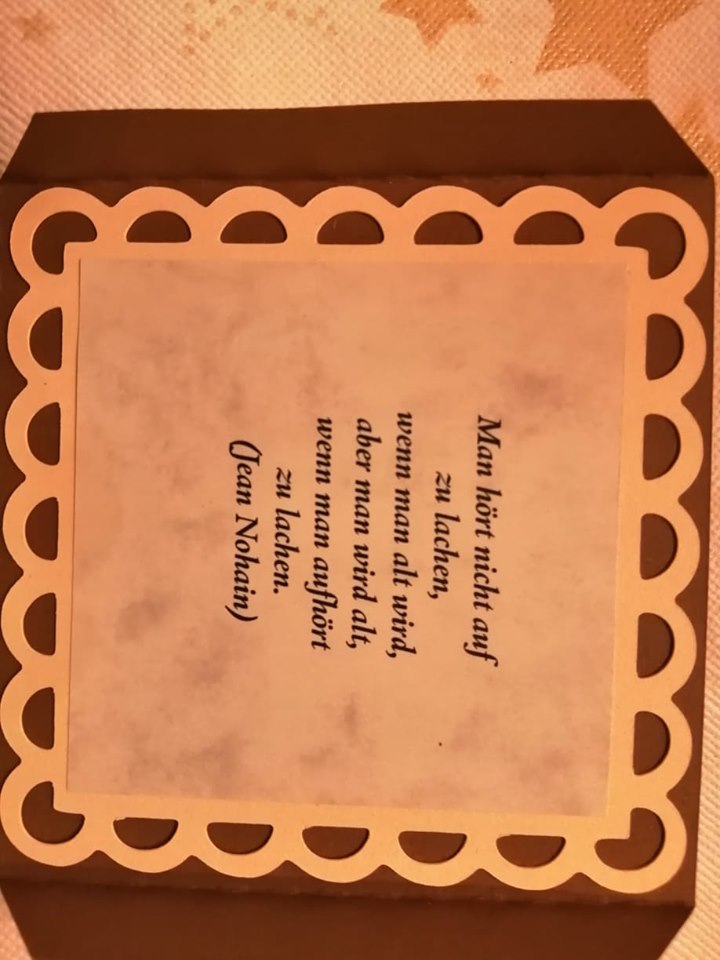 Man hört nicht auf
zu lachen,
wenn man alt wird,
aber man wird alt,
wenn man aufhört
zu lachen.
(Jean Nohain)